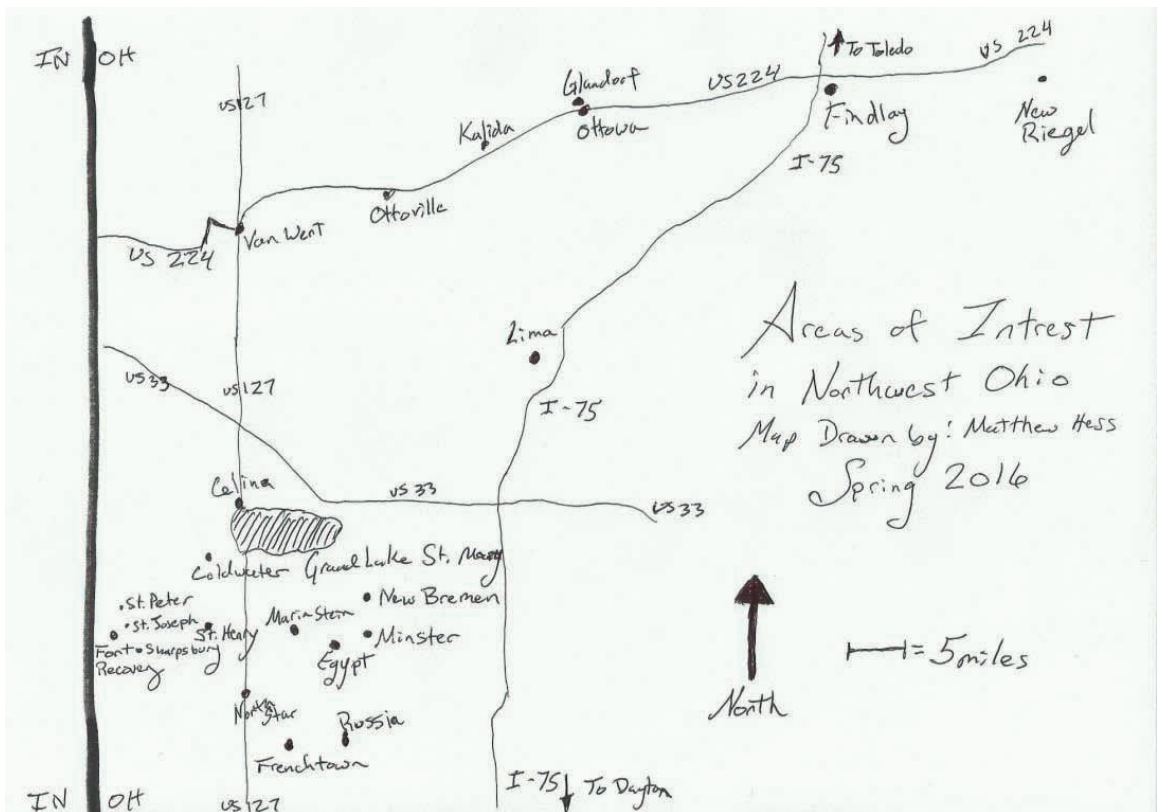 IN OH
US 127
Glandorf
Ottowa
Kalida
US 224
To Toledo
US 224
Findlay
New
Riegel
I-75
Ottoville
Van Wert
US 224
Lima
Areas of Intrest
in Northwest Ohio
Map Drawn by: Matthew Hess
Spring 2016
US 33
US 127
I-75
Celina
US 33
US 33
Coldwater
Grand Lake St. Marys
St. Peter
St. Joseph
Fort
Recovery
Sharpsburg
St. Henry
Maria Stein
New Bremen
Minster
Egypt
= 5 miles
North
North
Star
Russia
Frenchtown
IN OH
US 127
I-75
To Dayton